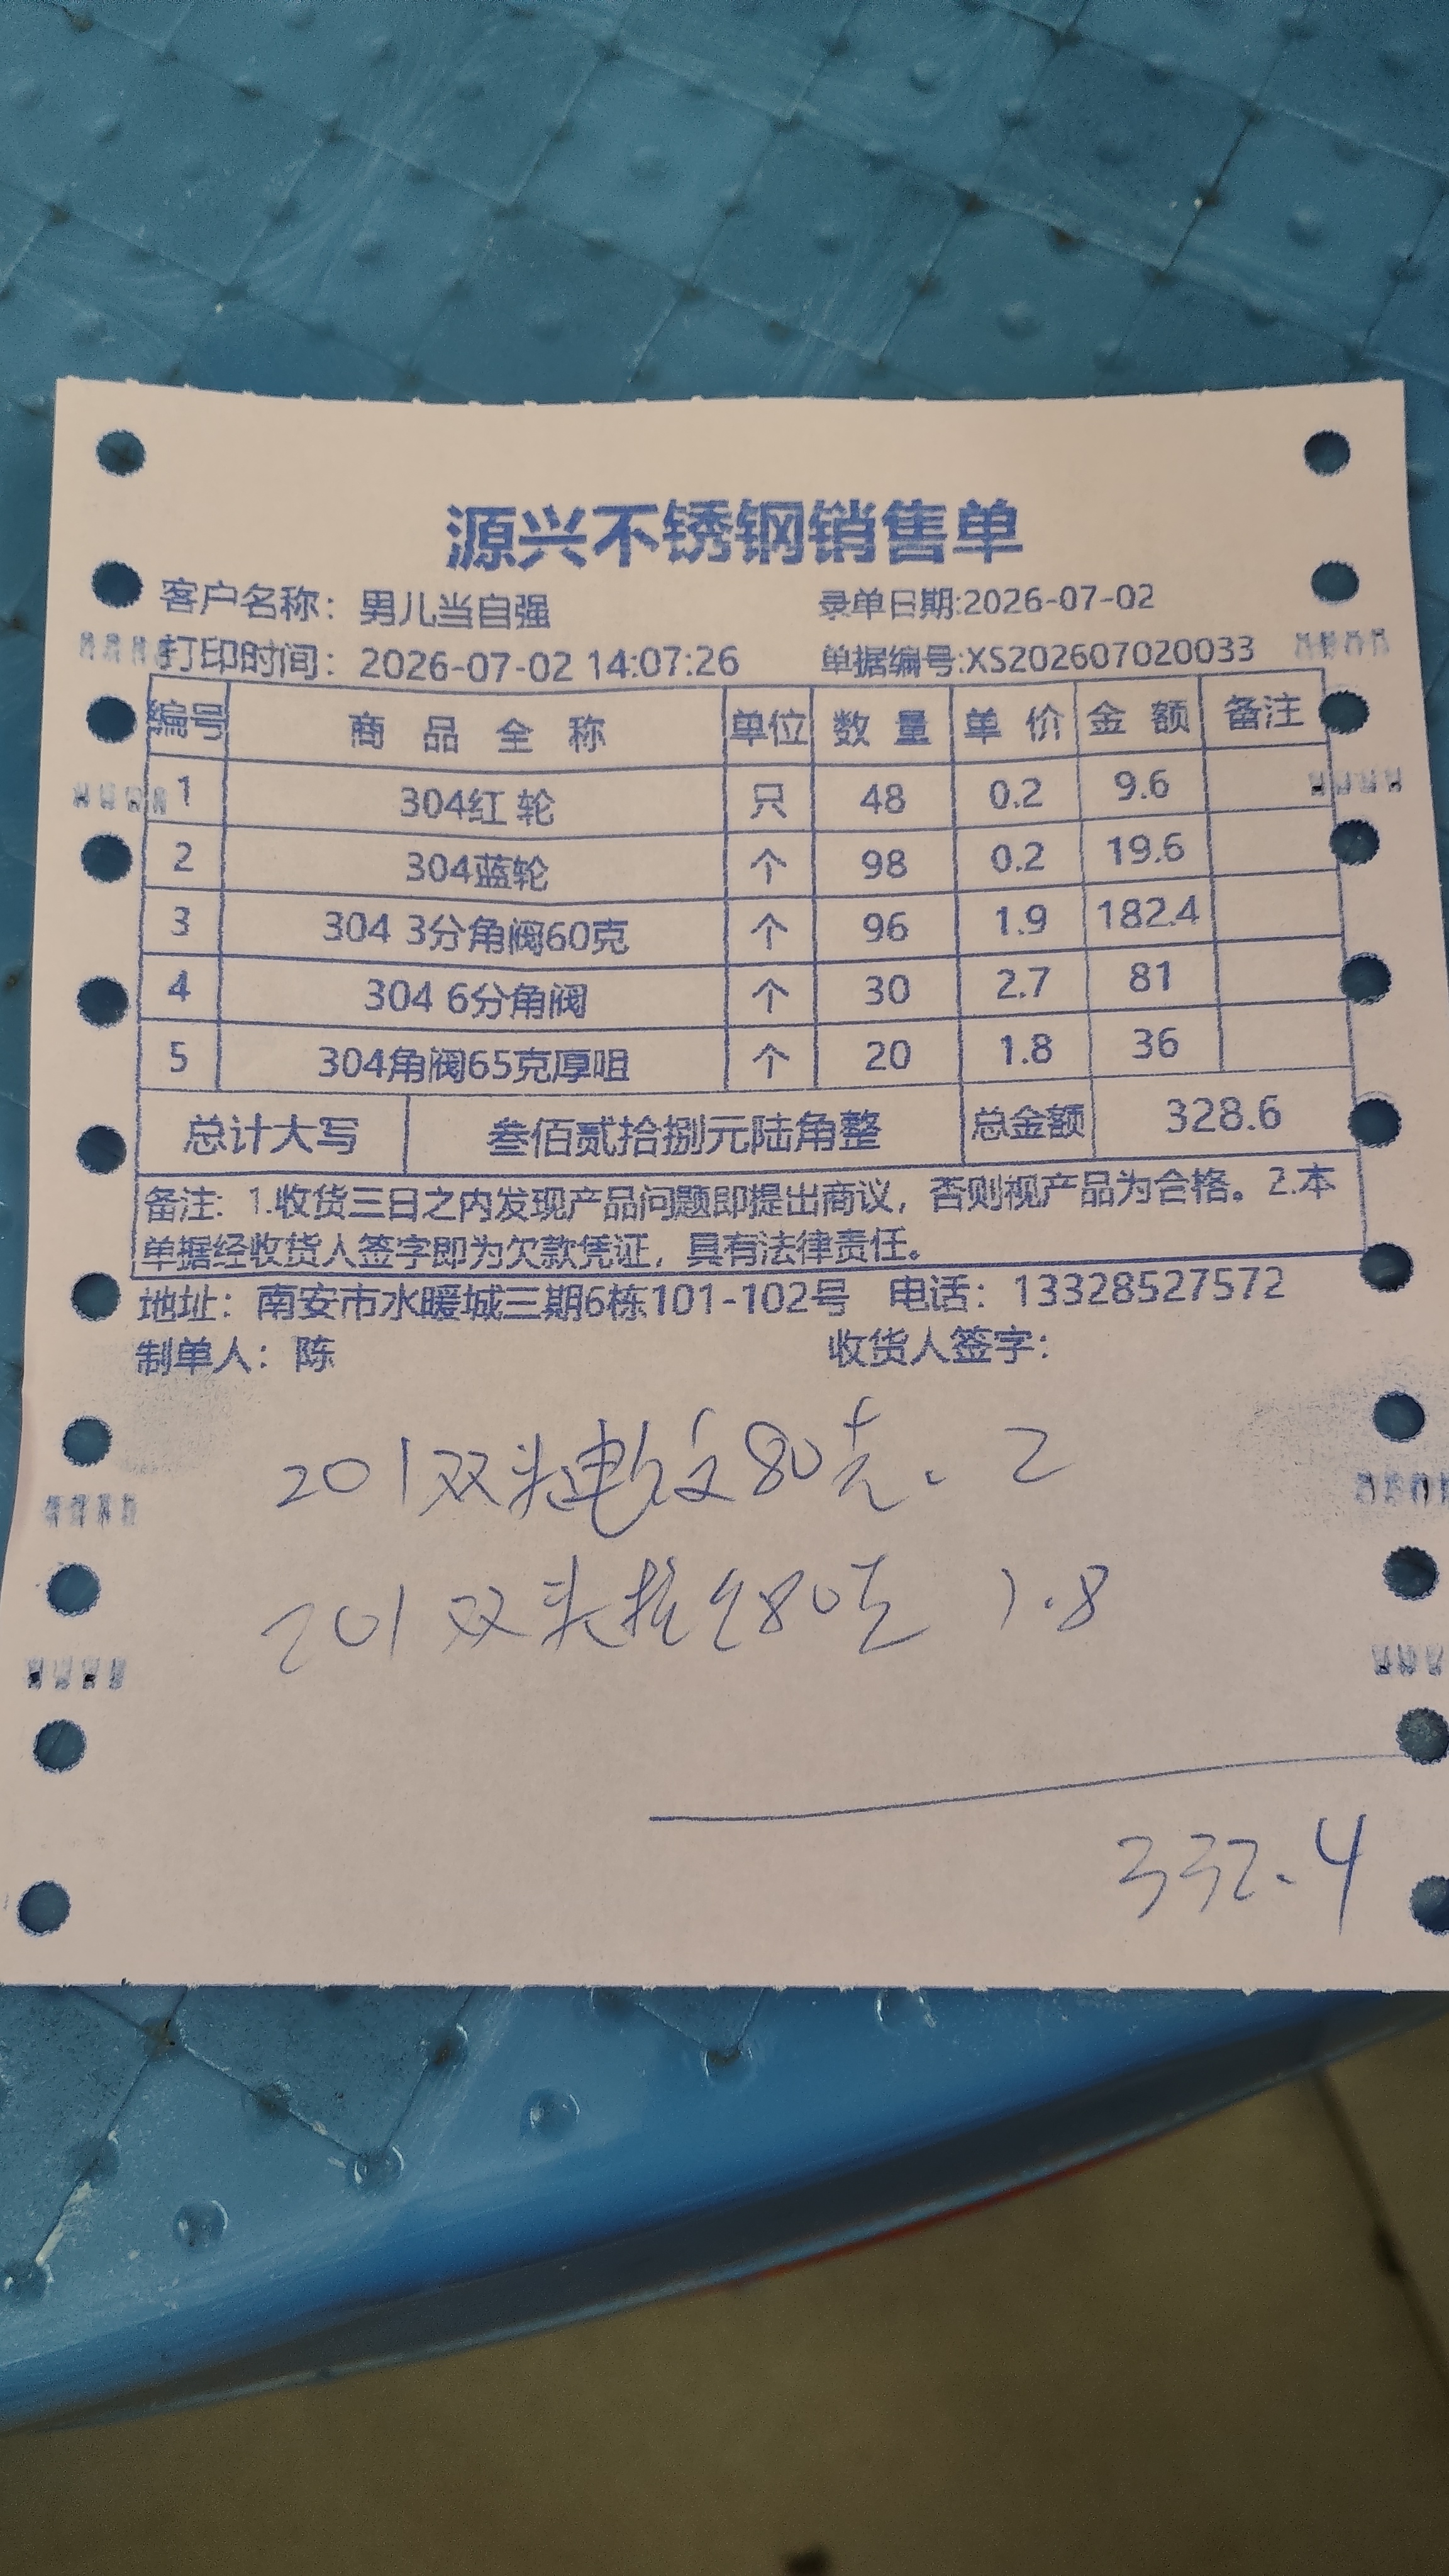 源兴不锈钢销售单
客户名称：男儿当自强 录单日期:2026-07-02
打印时间：2026-07-02 14:07:26 单据编号:XS202607020033
编号 商品全称 单位 数量 单价 金额 备注
1 304红 轮 只 48 0.2 9.6
2 304蓝轮 个 98 0.2 19.6
3 304 3分角阀60克 个 96 1.9 182.4
4 304 6分角阀 个 30 2.7 81
5 304角阀65克厚咀 个 20 1.8 36
总计大写 叁佰贰拾捌元陆角整 总金额 328.6
备注: 1.收货三日之内发现产品问题即提出商议，否则视产品为合格。2.本
单据经收货人签字即为欠款凭证，具有法律责任。
地址：南安市水暖城三期6栋101-102号 电话：13328527572
制单人：陈 收货人签字：
201双头 80克. 2
201双头 80克 1.8
332.4